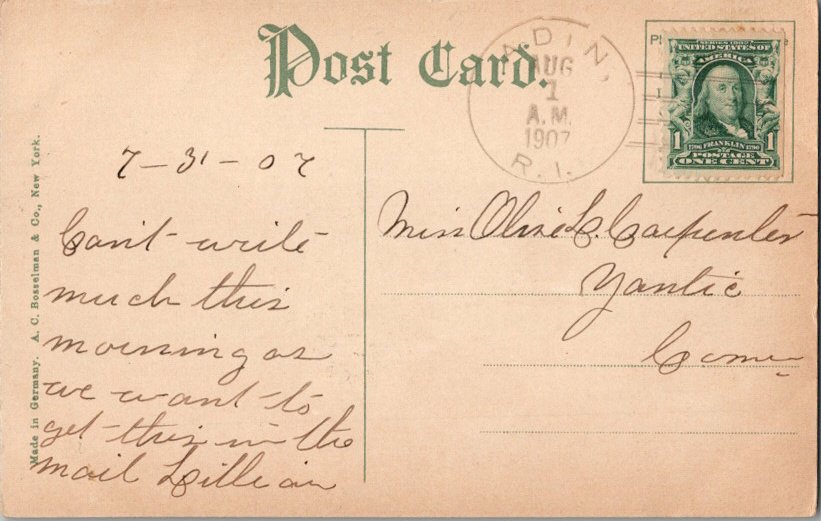 Post Card.
ADIN,
AUG
1
A.M.
1907
R.I.
SERIES 1902
UNITED STATES OF
AMERICA
1 1
1706 FRANKLIN 1790
POSTAGE
ONE CENT
7-31-07
Can't write
much this
morning as
we want to
get this in the
mail Lillian
Miss Olive L. Carpenter
Yantic
Conn
Made in Germany. A. C. Bosselman & Co., New York.